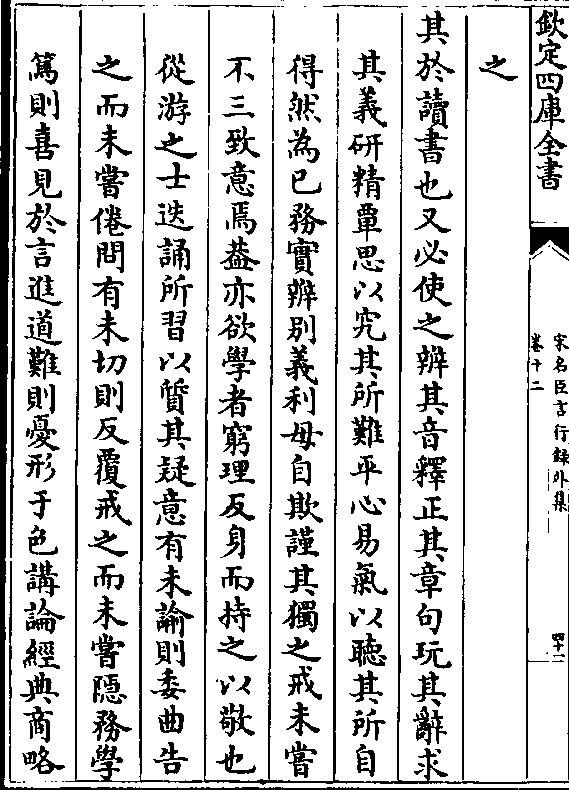 欽定四庫全書
宋名臣言行錄外集
卷十二
四十二
之
其於讀書也又必使之辨其音釋正其章句玩其辭求
其義研精覃思以究其所難平心易氣以聽其所自
得然為已務實辨别義利毋自欺謹其獨之戒未嘗
不三致意焉葢亦欲學者窮理反身而持之以敬也
從游之士迭誦所習以質其疑意有未諭則委曲告
之而未嘗倦問有未切則反覆戒之而未嘗隠務學
篤則喜見於言進道難則憂形于色講論經典商略